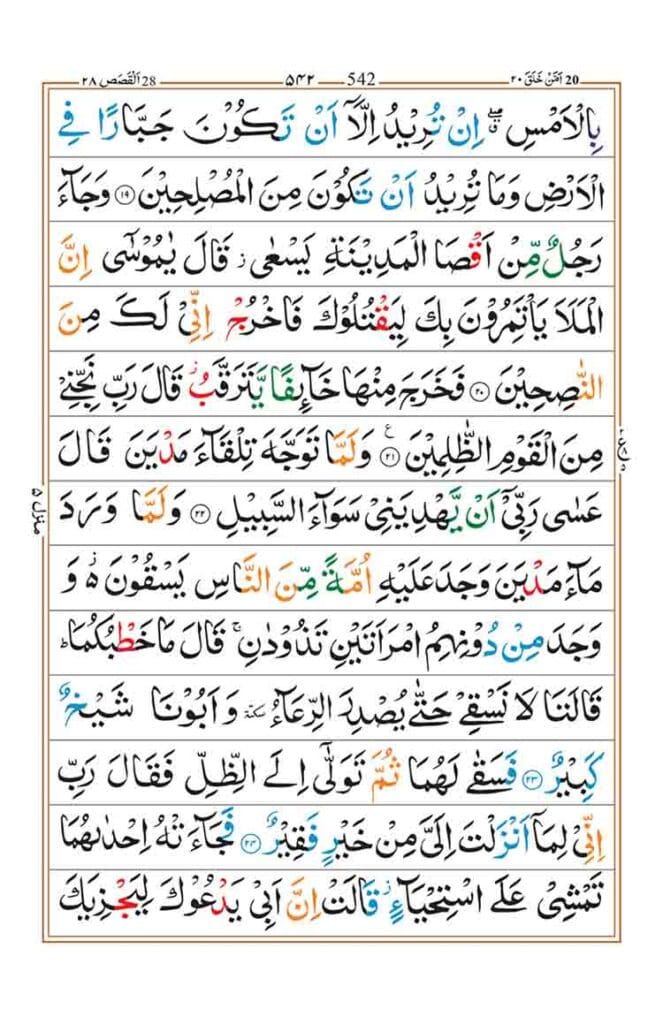 20 اَمَّنْ خَلَقَ ٢٠ 542 ۵۴۲ 28 اَلْقَصَص ٢٨
بِالْاَمْسِ ۖۗ اِنْ تُرِيْدُ اِلَّاۤ اَنْ تَكُوْنَ جَبَّارًا فِي
الْاَرْضِ وَمَا تُرِيْدُ اَنْ تَكُوْنَ مِنَ الْمُصْلِحِيْنَ ۟۱۹ وَجَآءَ
رَجُلٌ مِّنْ اَقْصَا الْمَدِيْنَةِ يَسْعٰى ز قَالَ يٰمُوْسٰۤى اِنَّ
الْمَلَاَ يَاْتَمِرُوْنَ بِكَ لِيَقْتُلُوْكَ فَاخْرُجْ اِنِّيْ لَكَ مِنَ
النّٰصِحِيْنَ ۟۲۰ فَخَرَجَ مِنْهَا خَآىِٕفًا يَّتَرَقَّبُ ز قَالَ رَبِّ نَجِّنِيْ
مِنَ الْقَوْمِ الظّٰلِمِيْنَ ۟۲۱ ع وَلَمَّا تَوَجَّهَ تِلْقَآءَ مَدْيَنَ قَالَ
عَسٰى رَبِّيْۤ اَنْ يَّهْدِيَنِيْ سَوَآءَ السَّبِيْلِ ۟۲۲ وَلَمَّا وَرَدَ
مَآءَ مَدْيَنَ وَجَدَ عَلَيْهِ اُمَّةً مِّنَ النَّاسِ يَسْقُوْنَ ە ز وَ
وَجَدَ مِنْ دُوْنِهِمُ امْرَاَتَيْنِ تَذُوْدٰنِ ۚ قَالَ مَا خَطْبُكُمَا ؕ
قَالَتَا لَا نَسْقِيْ حَتّٰى يُصْدِرَ الرِّعَآءُ سكتة وَاَبُوْنَا شَيْخٌ
كَبِيْرٌ ۟۲۳ فَسَقٰى لَهُمَا ثُمَّ تَوَلّٰۤى اِلَى الظِّلِّ فَقَالَ رَبِّ
اِنِّيْ لِمَاۤ اَنْزَلْتَ اِلَيَّ مِنْ خَيْرٍ فَقِيْرٌ ۟۲۴ فَجَآءَتْهُ اِحْدٰىهُمَا
تَمْشِيْ عَلَى اسْتِحْيَآءٍ ز قَالَتْ اِنَّ اَبِيْ يَدْعُوْكَ لِيَجْزِيَكَ
منزل ۵